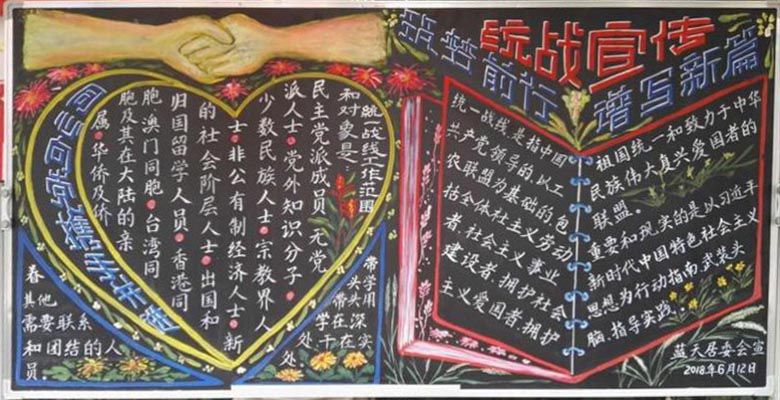 筑梦前行
统战宣传
谱写新篇
统一战线工作范围
和对象是：
民主党派成员·无党
派人士·党外知识分子·
少数民族人士·宗教界人
士·非公有制经济人士·新
的社会阶层人士·出国和
归国留学人员·香港同
胞·澳门同胞·台湾同
胞及其在大陆的亲
属·华侨及侨
眷
其他
需要联系
和团结的人
员。
统一战线是指中国
共产党领导的,以工
农联盟为基础的包
括全体社会主义劳动
者,社会主义事业
建设者,拥护社会
主义爱国者,拥护
祖国统一和致力于中华
民族伟大复兴爱国者的
联盟。
重要和现实的是以习近平
新时代中国特色社会主义
思想为行动指南,武装头
脑,指导实践。
蓝天居委会宣
2018.年6月12日